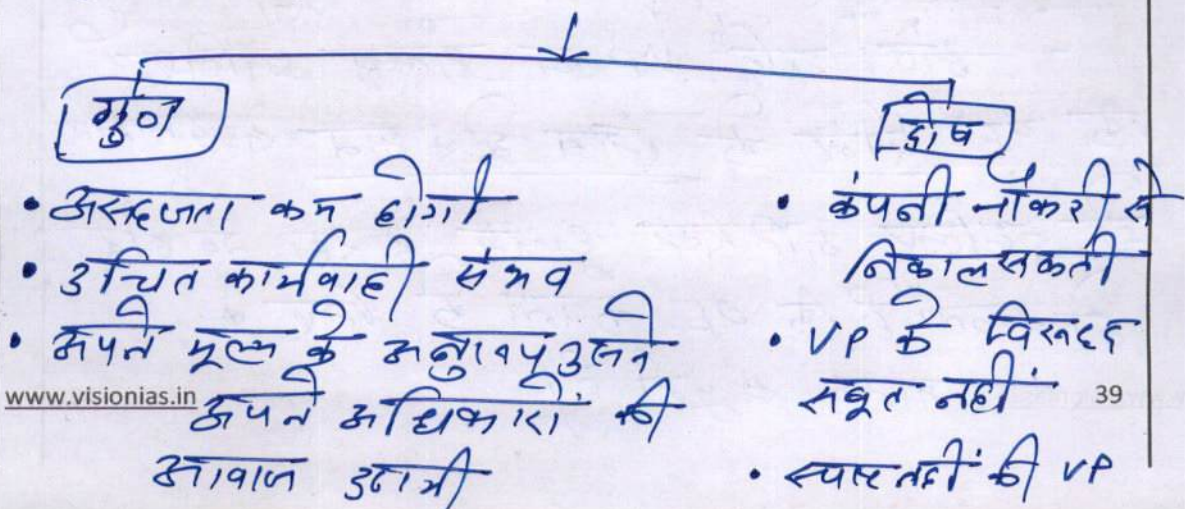 गुण
• असहजता कम होगी
• उचित कार्यवाही संभव
• अपने मूल्य के अनुरूप उसने
अपने अधिकारों की
आवाज उठायी
दोष
• कंपनी नौकरी से
निकाल सकती
• VP के विरूद्ध
सबूत नहीं
• स्पष्ट नहीं की VP
www.visionias.in
39